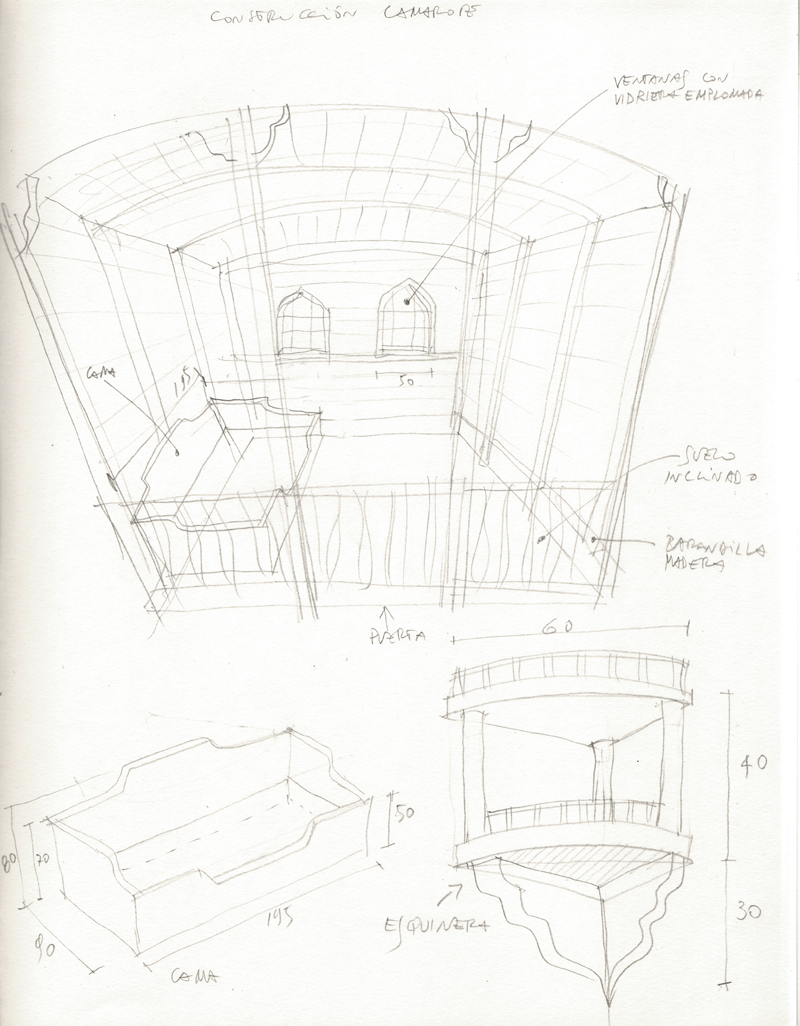 CONSTRUCCIÓN CAMAROTE
VENTANAS CON
VIDRIERA EMPLOMADA
CAMA
195
50
SUELO
INCLINADO
BARANDILLA
MADERA
PUERTA
60
40
50
80
70
30
ESQUINERA
195
90
CAMA